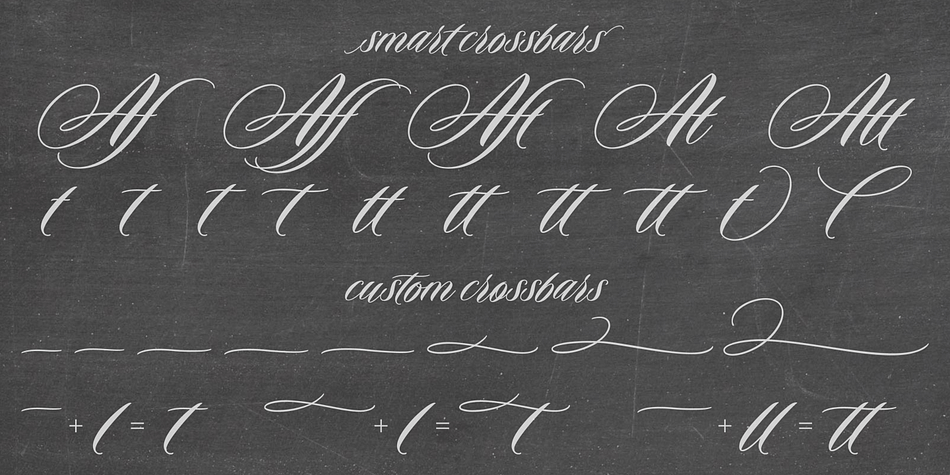 smart crossbars
Af Aff Aft At Att
t t t t tt tt tt tt t t
custom crossbars
+ l = t + l = t + ll = tt